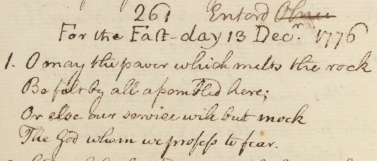 261 Enterd Olney
For the Fast-day 13 Decr. 1776
1. O may the power which melts the rock
Be felt by all assembled here;
Or else our service will but mock
The God whom we profess to fear.